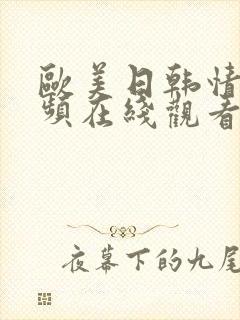 歐美日韩情
頻在綫觀看
夜幕下的九尾